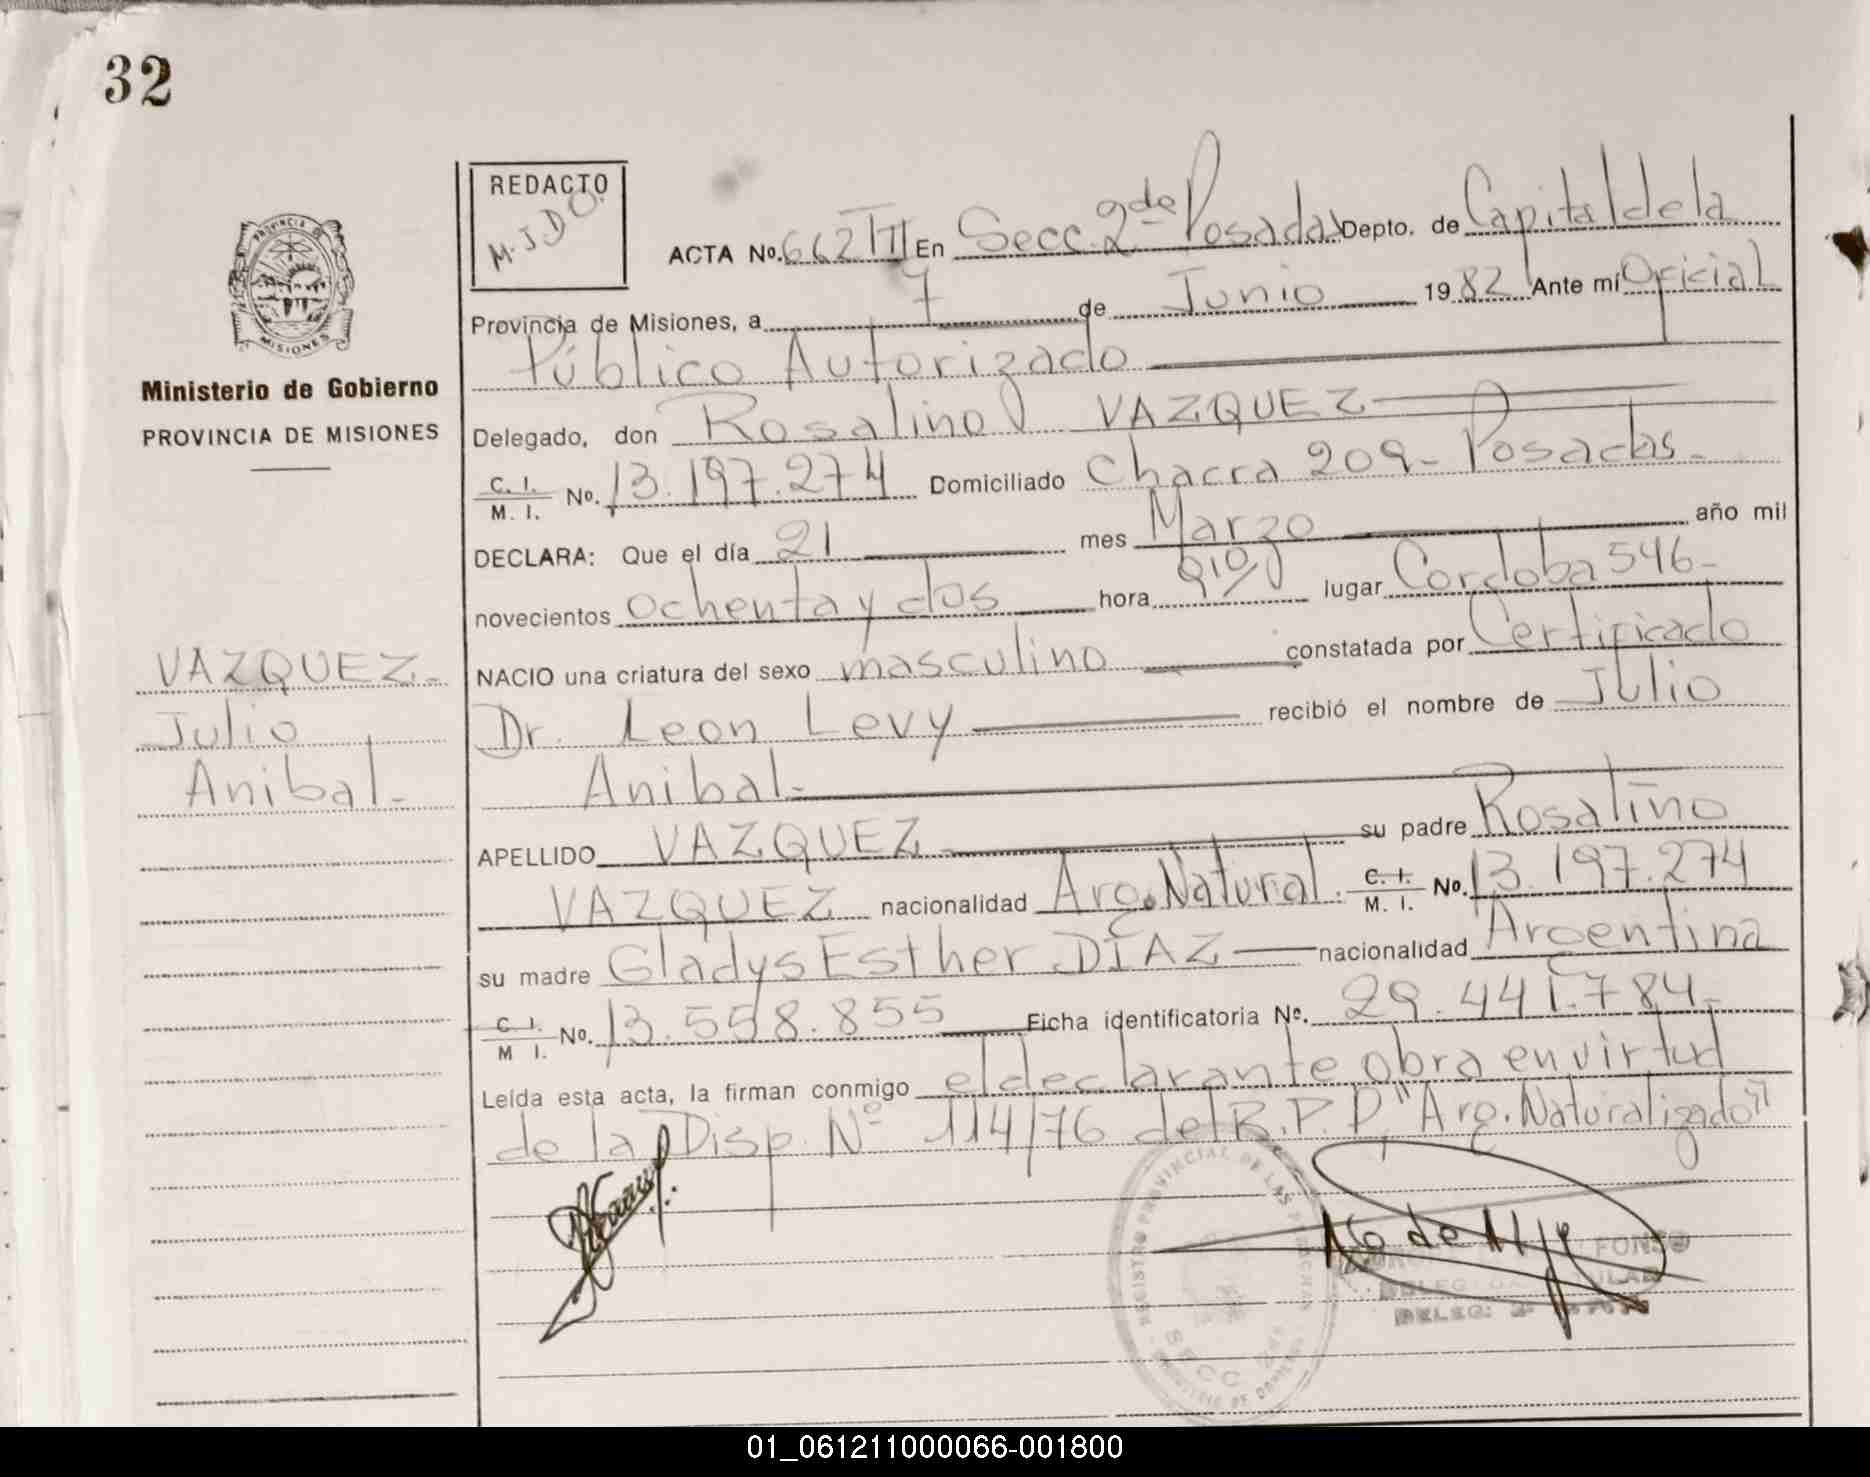 32
REDACTO
M.J.D.O.
PROVINCIA D
MISIONES
Ministerio de Gobierno
PROVINCIA DE MISIONES
ACTA No. 662/TII En Secc. 2da Posadas Depto. de Capital de la
Provincia de Misiones, a 7 de Junio 1982 Ante mí Oficial
Público Autorizado
Delegado, don Rosalino VAZQUEZ
C. I. / M. I. No. 13.197.274 Domiciliado Chacra 209- Posadas-
DECLARA: Que el día 21 mes Marzo año mil
novecientos ochenta y dos hora 910 lugar Cordoba 546-
NACIO una criatura del sexo masculino constatada por Certificado
Dr. Leon Levy recibió el nombre de Julio
Anibal-
VAZQUEZ-
Julio
Anibal-
APELLIDO VAZQUEZ su padre Rosalino
VAZQUEZ nacionalidad Arg. Natural. C. I. / M. I. No. 13.197.274
su madre Gladys Esther DÍAZ nacionalidad Argentina
C. I. / M I. No. 13.558.855 Ficha identificatoria No. 29.441.784-
Leída esta acta, la firman conmigo el declarante obra en virtud
de la Disp. Nº 114/76 del R.P.P, "Arg. Naturalizado"
REGISTRO PROVINCIAL DE LAS PERSONAS
SECC 2da
FONSO
DELEG. TITULAR
DELEG: 2
01_061211000066-001800